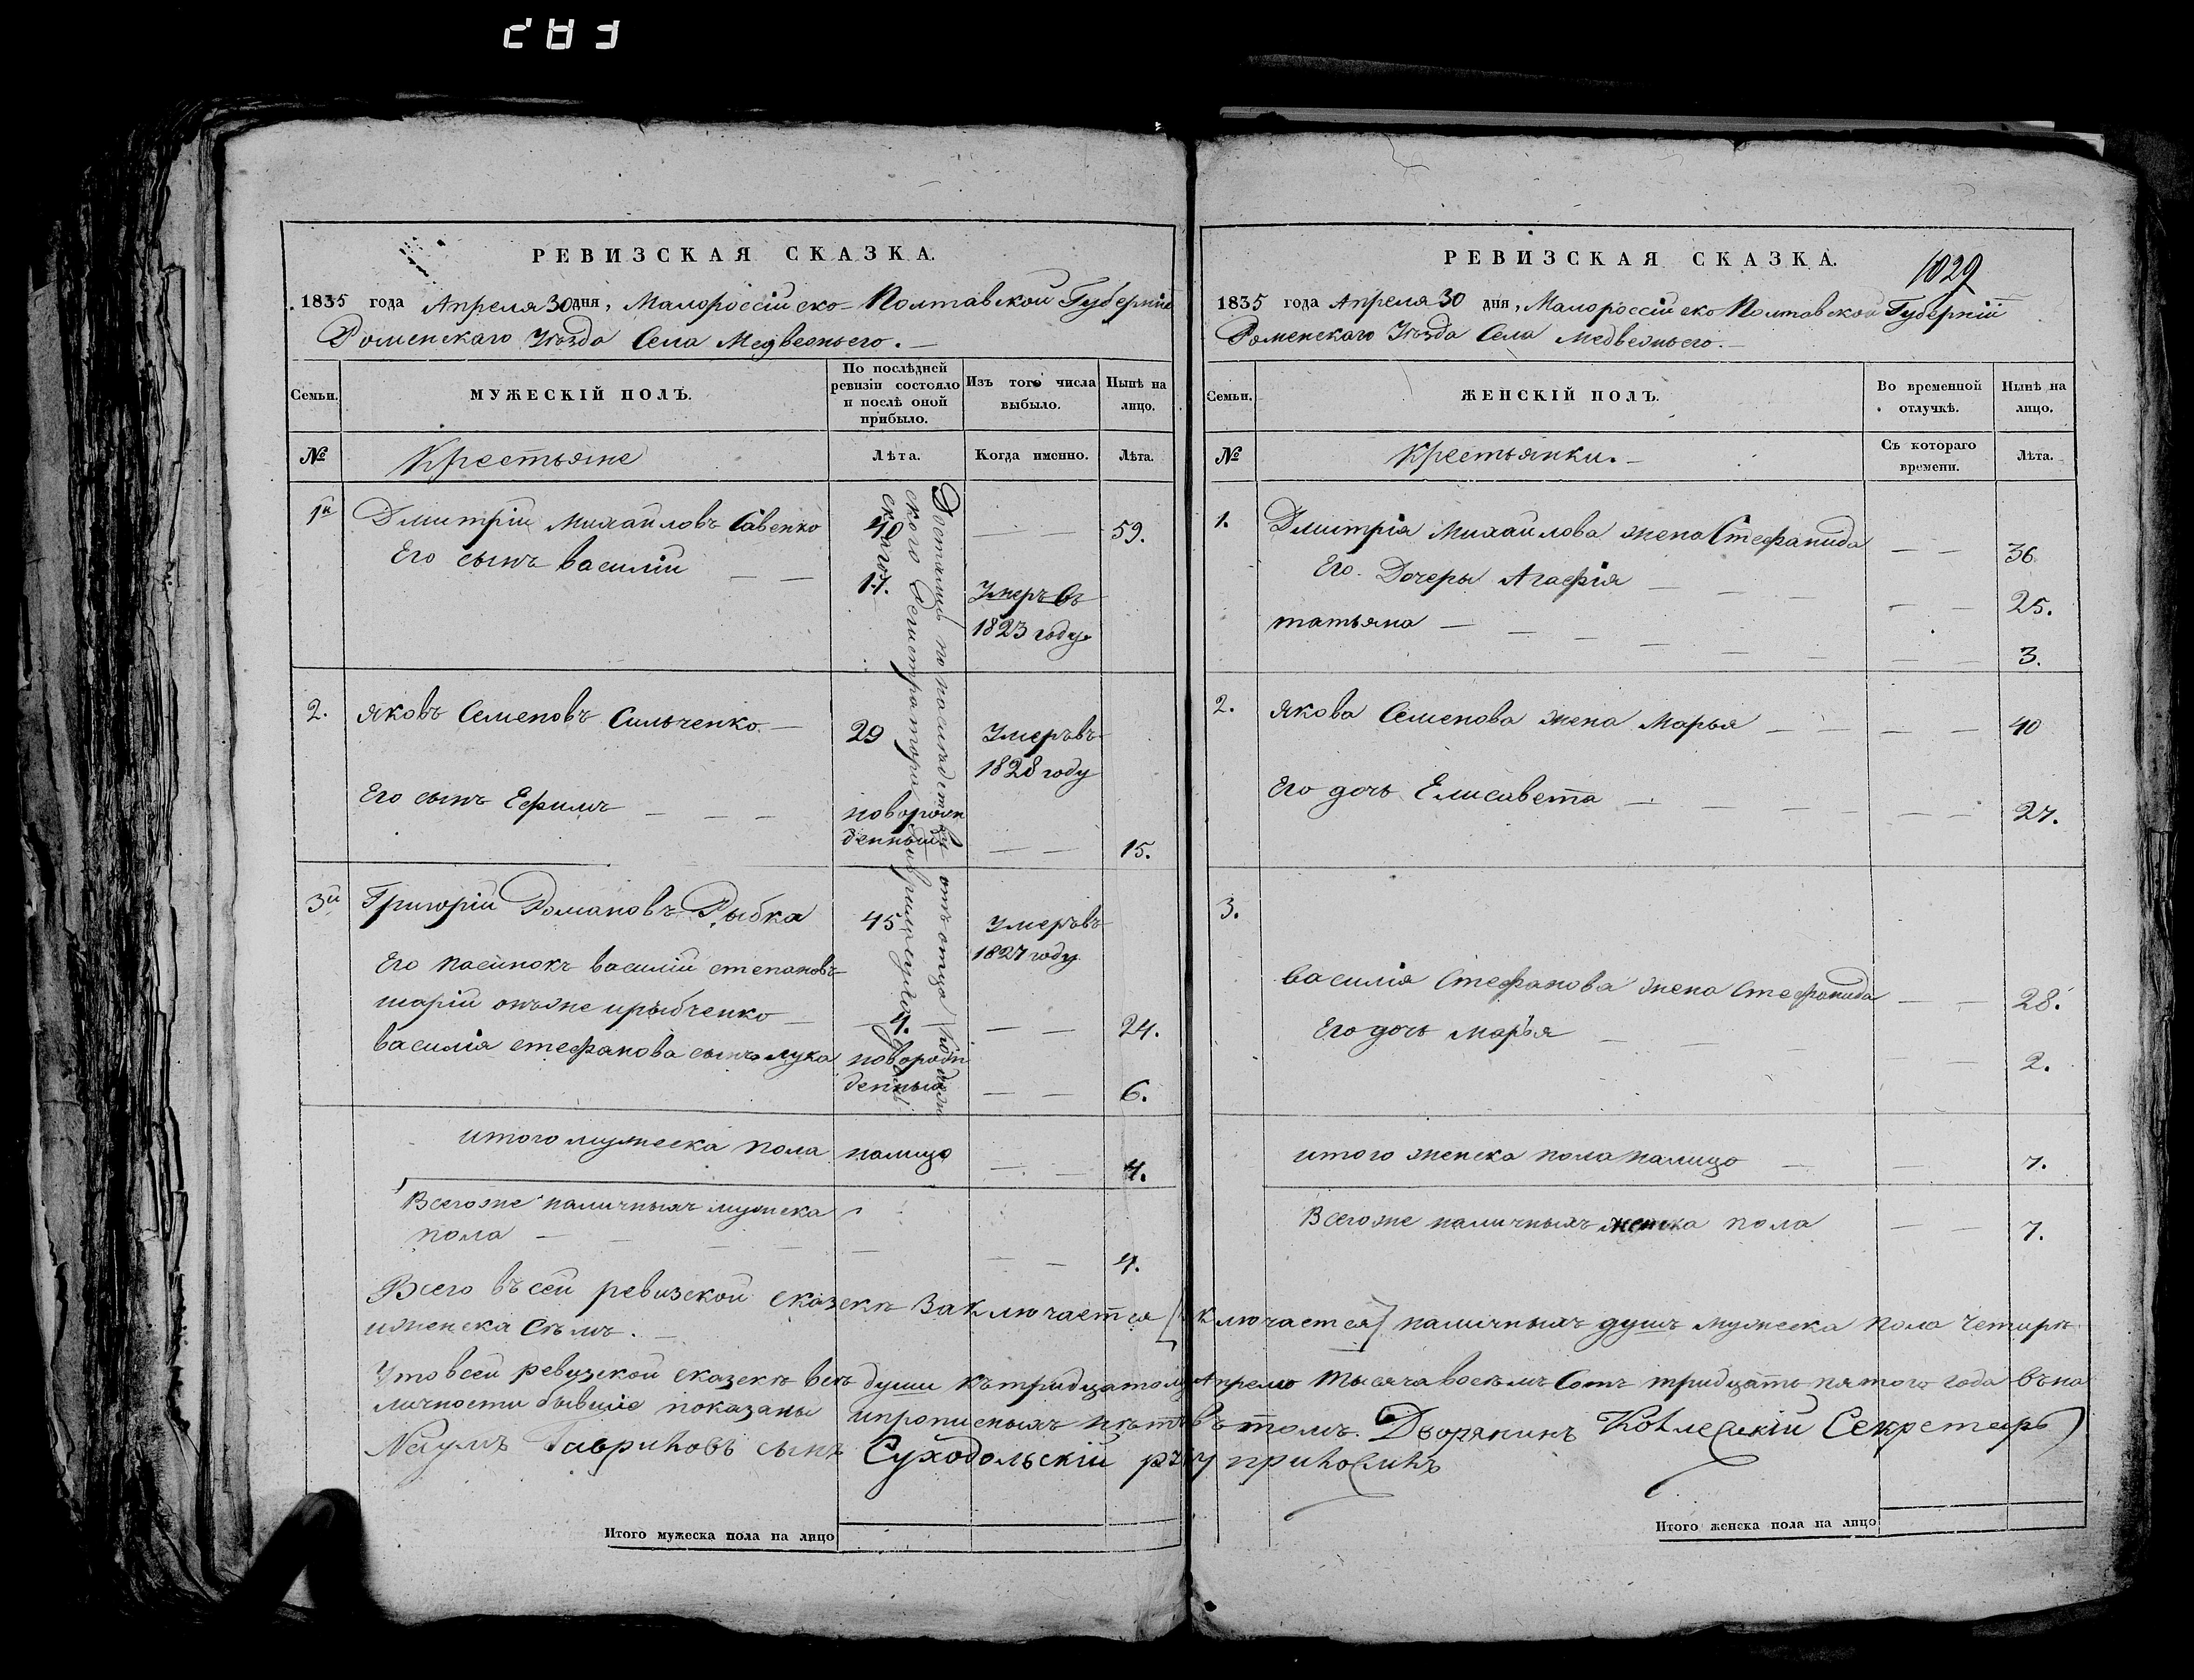 283
РЕВИЗСКАЯ СКАЗКА.
1835 года Апреля 30 дня, Малороссійско-Полтавской Губерніи
Роменского Уѣзда Села Медвежьего.
Семьи.
МУЖЕСКІЙ ПОЛЪ.
По послѣдней ревизіи состояло и послѣ оной прибыло.
Изъ того числа выбыло.
Нынѣ на лицо.
№
Крестьяне
Лѣта.
Когда именно.
Лѣта.
Достались по наслѣдству отъ отца
ского Регистратора
1й Дмитрій Михайловъ Савенко 40 — — 59.
Его сынъ василій — — 17. Умеръ въ
1823 году.
2. яковъ Семеновъ Сильченко — 29 Умеръ въ
1828 году
Его сынъ Ефимъ — — — новорож
денный — — 15.
3й Григорій Романовъ Рыбка 45 Умеръ въ
1827 году
Его пасинокъ василій степановъ
онъже ирыбченко — 4. — — 24.
василія стефанова сынъ лука новорож
денный — — 6.
итого мужеска пола налицо — — 4.
Всегоже наличныхъ мужска
пола — — — 4.
Всего въ сей ревизской сказкѣ заключается
[ключается] наличныхъ душъ мужеска пола четыри
иженска Сѣмъ.
Что всей ревизской сказкѣ всѣ души къ тридцатому Апрелю тысяча восѣмъ Сотъ тридцать пятого года въ на
личности бывшіе показаны ипрописныхъ нѣтъ въ томъ. Дворянинъ Секретарь
Наумъ Гавриловъ сынъ Суходольскій руку приложилъ
Итого мужеска пола на лицо
РЕВИЗСКАЯ СКАЗКА.
1029
1835 года Апреля 30 дня, Малороссійско Полтавской Губерніи
Роменского Уѣзда Села Медвежьего.
Семьи.
ЖЕНСКІЙ ПОЛЪ.
Во временной отлучкѣ.
Нынѣ на лицо.
№
Крестьянки.
Съ котораго времени.
Лѣта.
1. Дмитрія Михайлова жена Стефанида — — 36
Его Дочеры Агафія — — — 25.
татьяна — — — 3.
2. Якова Семенова жена Марья — — — — 40
Его дочь Елисавета — — — 27.
3.
василія Стефанова жена Стефанида — — 28.
Его дочь марья — — 2.
итого женска пола налицо — — 7.
Всегоже наличныхъ женска пола — — 7.
Итого женска пола на лицо